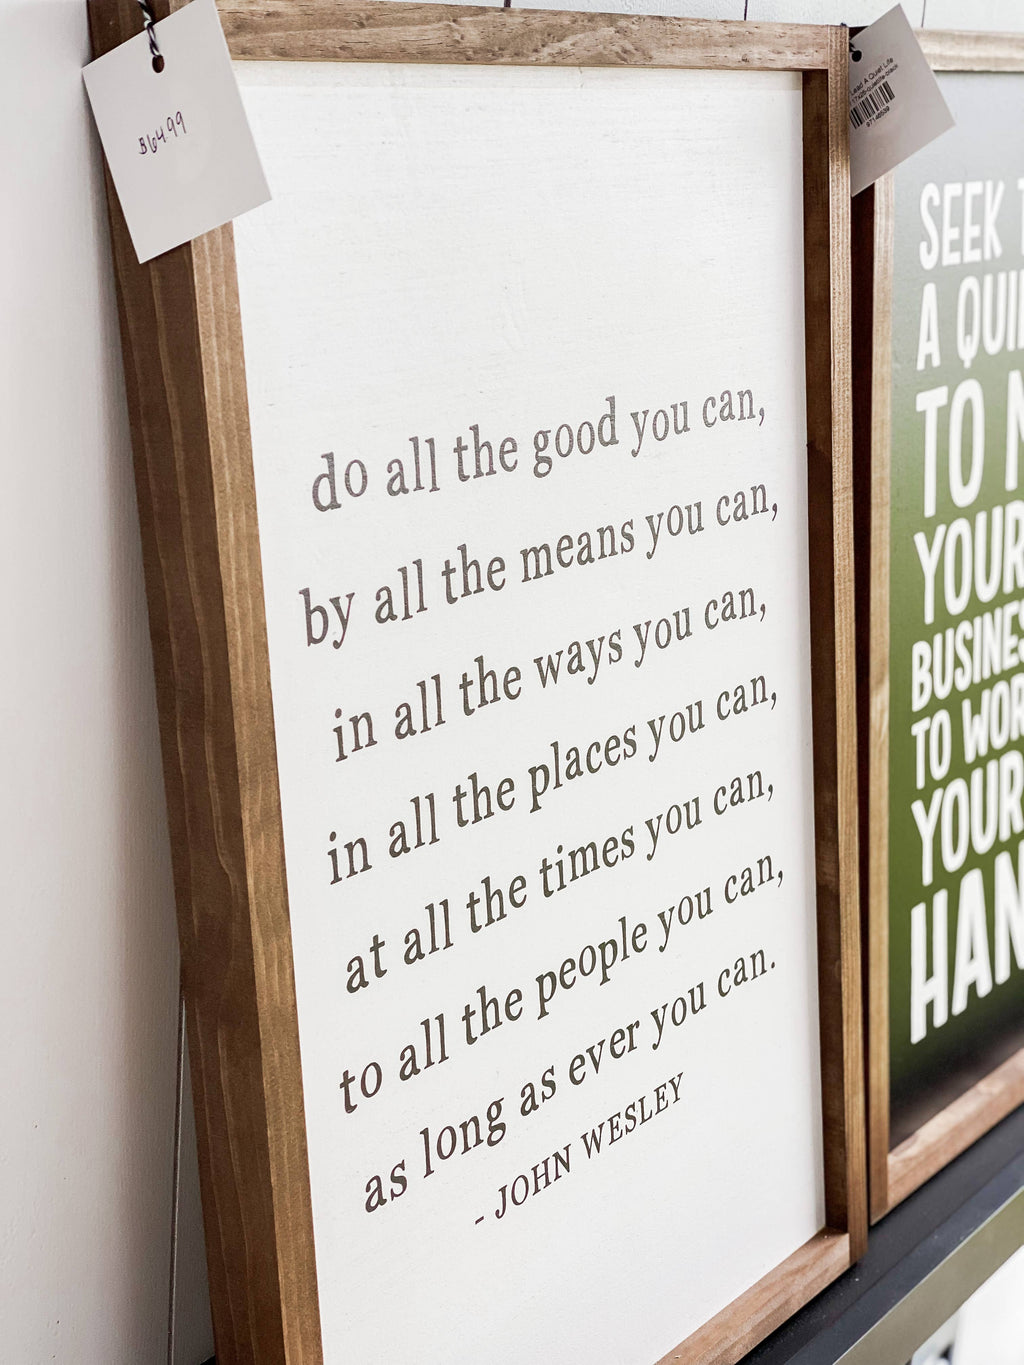 $64.99
do all the good you can,
by all the means you can,
in all the ways you can,
in all the places you can,
at all the times you can,
to all the people you can,
as long as ever you can.
- JOHN WESLEY
Lead A Quiet Life
SEEK
A
TO
YOUR
TO
YOUR